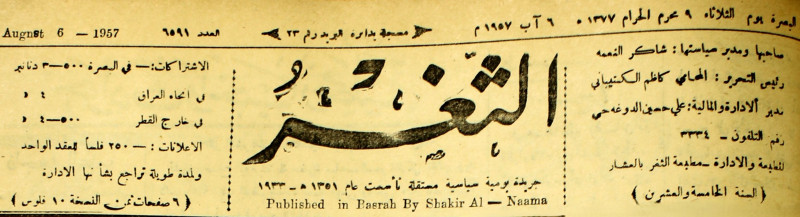 البصرة يوم الثلاثاء ٩ محرم الحرام ١٣٧٧ ه ٦ آب ١٩٥٧ م
مسجلة بدائرة البريد رقم ٢٣
العدد ٦٥٩١
Augnst 6 - 1957
صاحبها ومدير سياستها : شاكر النعمه
رئيس التحرير : المحامي كاظم
مدير الادارة والمالية : علي حسين
رقم التلفون - ٣٣٣٤
المطبعة والادارة - مطبعة الثغر بالعشار
( السنة الخامسة والعشرين )
الثغر
جريدة يومية سياسية مستقلة تأسست عام ١٣٥١ ه - ١٩٣٣
Published in Basrah By Shakir Al - Naama
الاشتراكات :- في البصرة ٥٠٠-٣ دنانير
في انحاء العراق ٤ »
في خارج القطر ٥٠٠-٤ »
الاعلانات :- ٢٥٠ فلساً للعقد الواحد
ولمدة طويلة تراجع بشأنها الادارة
( ٦ صفحات ثمن النسخة ١٠ فلوس )